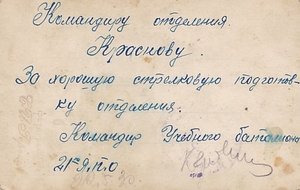 Командиру отделения.
Краснову.
За хорошую стрелковую подготов-
ку отделения.
Командир Учебного батальона